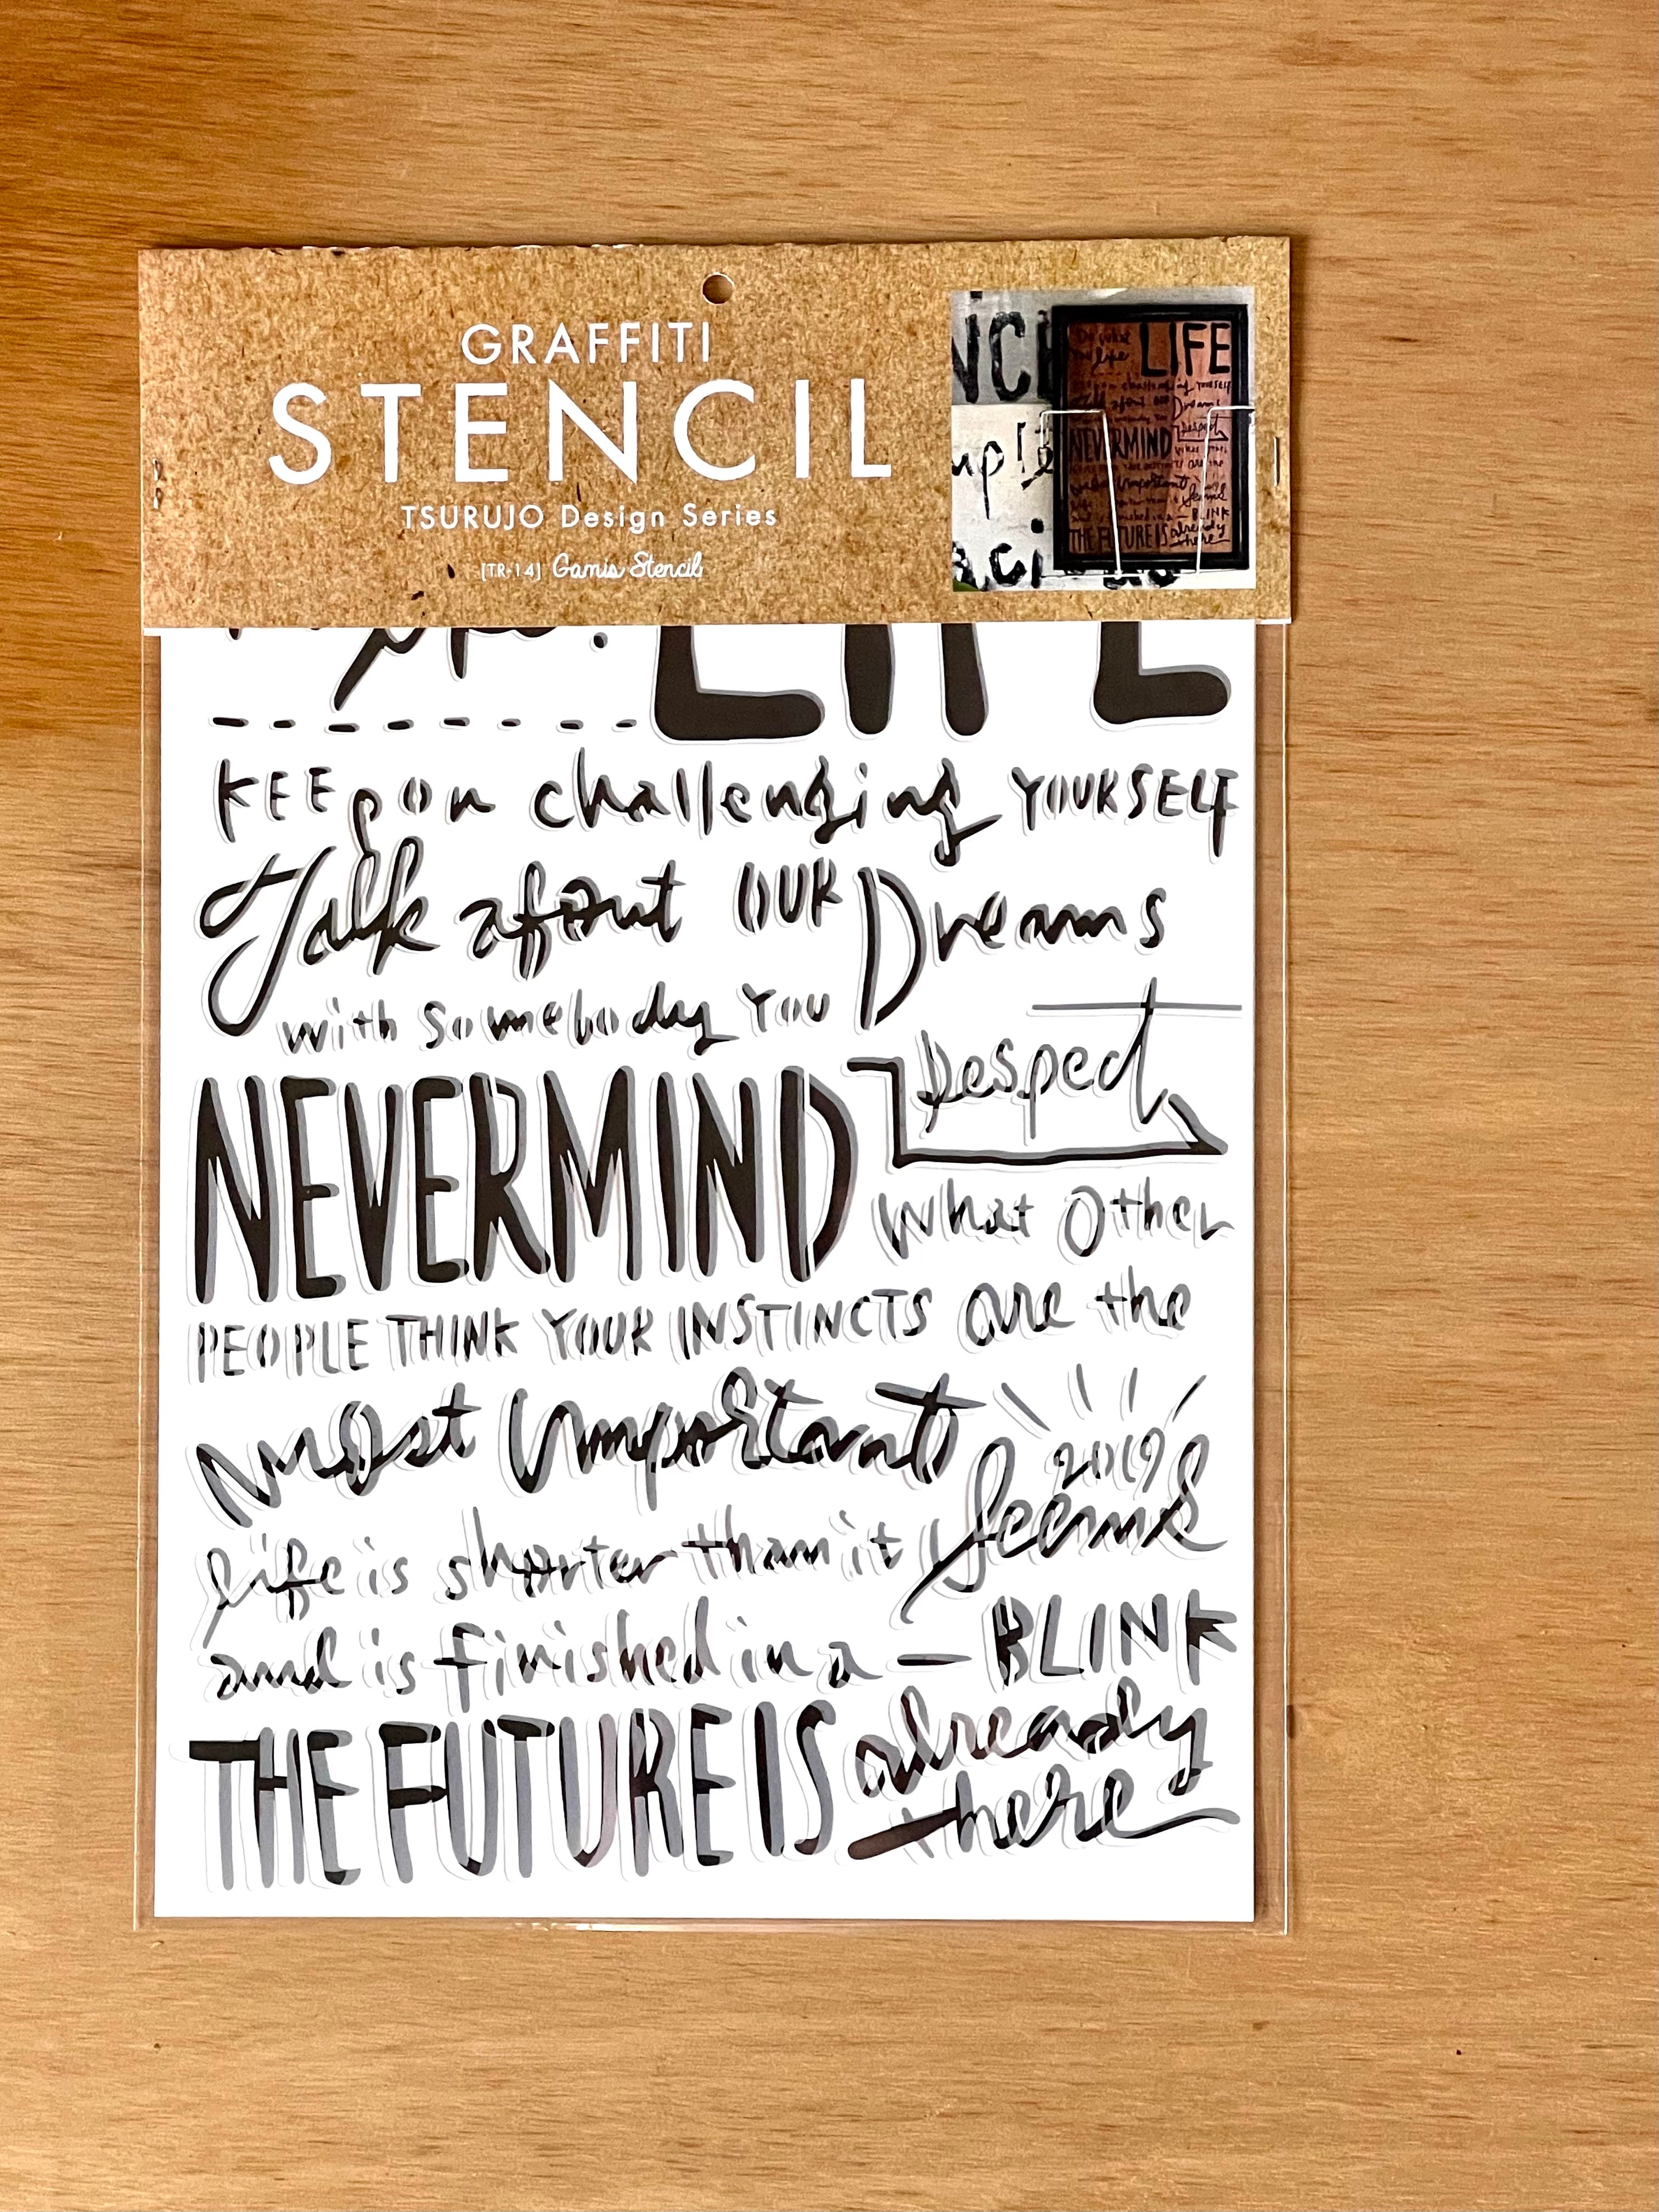 GRAFFITI
STENCIL
TSURUJO Design Series
[TR-14] Gamis Stencil
LIFE
KEEp on challenging YOURSELF
Talk about OUR Dreams
with somebody YOU
Respect
NEVERMIND
What Other
PEOPLE THINK YOUR INSTINCTS are the
most important
2019
life is shorter than it seems
and is finished in a — BLINK
THE FUTURE IS already
there